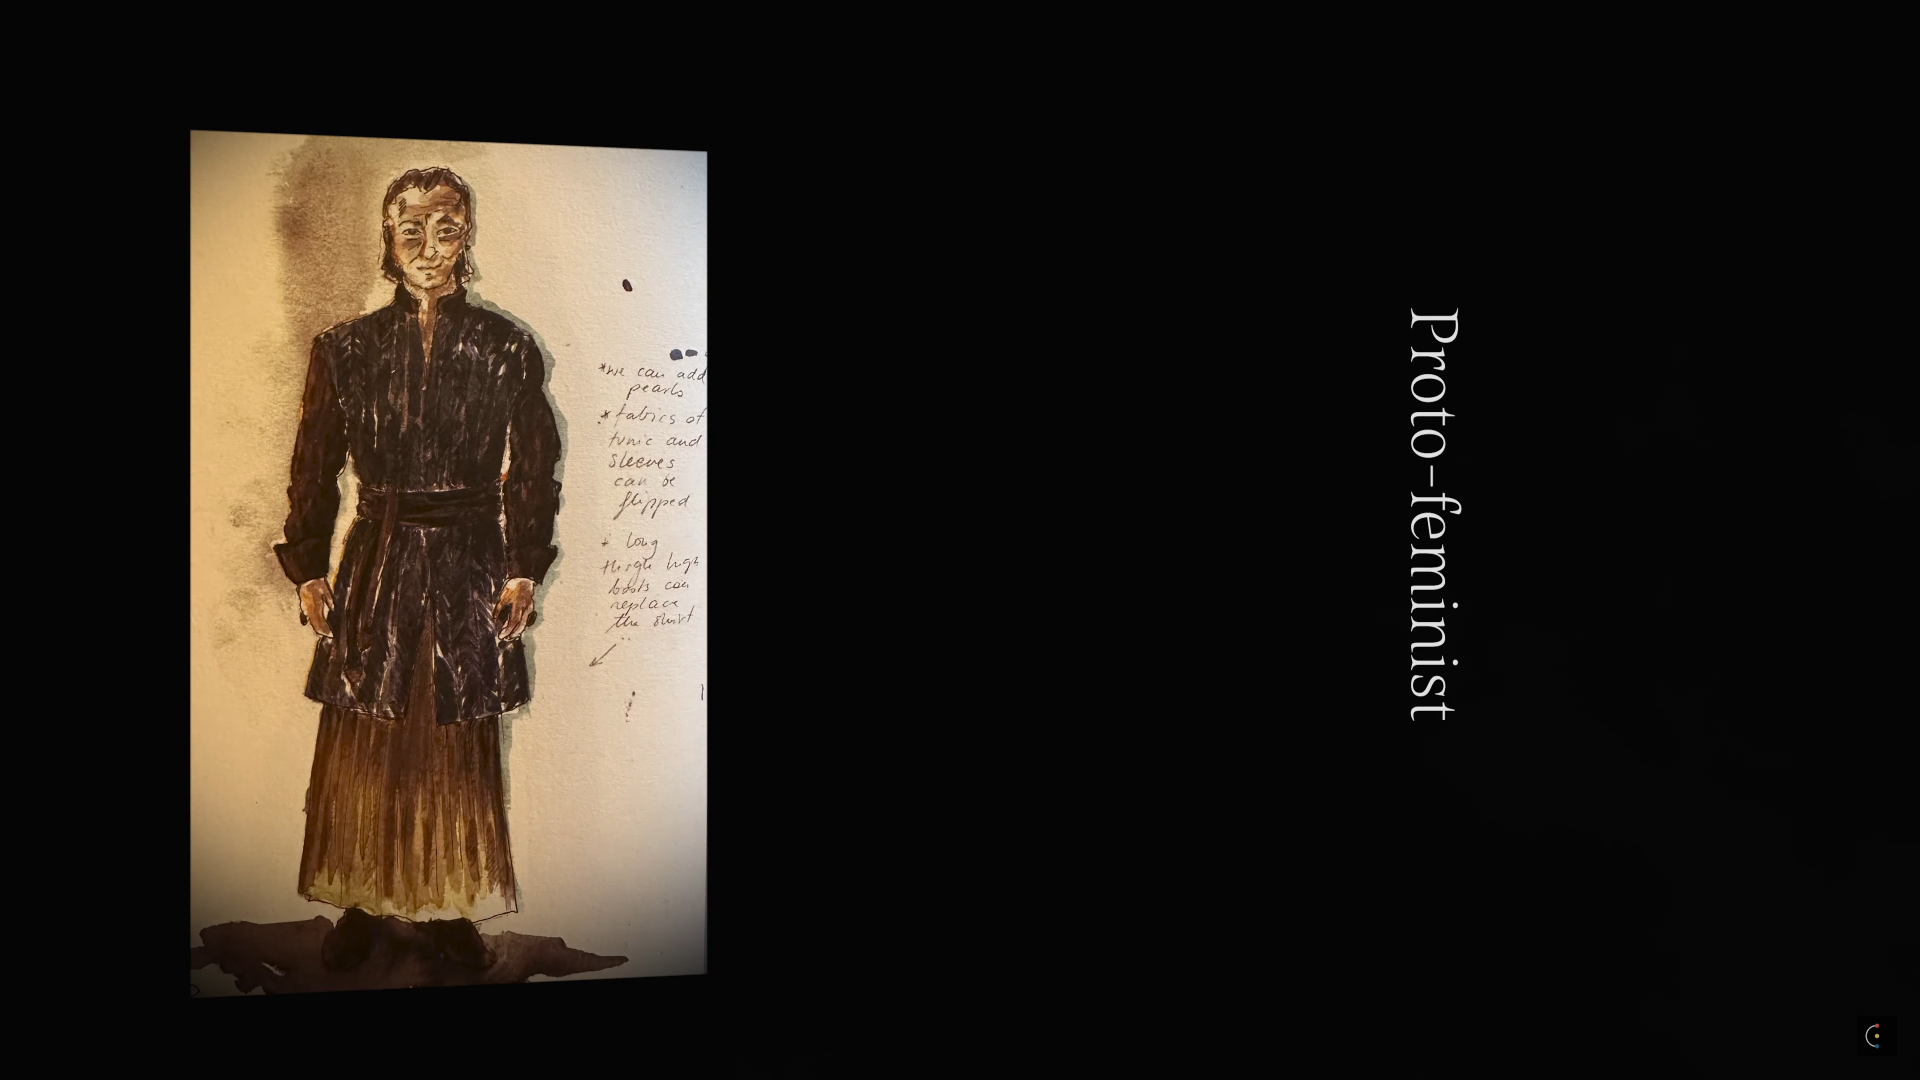 *we can add
pearls
* fabrics of
tunic and
sleeves
can be
flipped
* long
thigh high
boots can
replace
the skirt
Proto-feminist